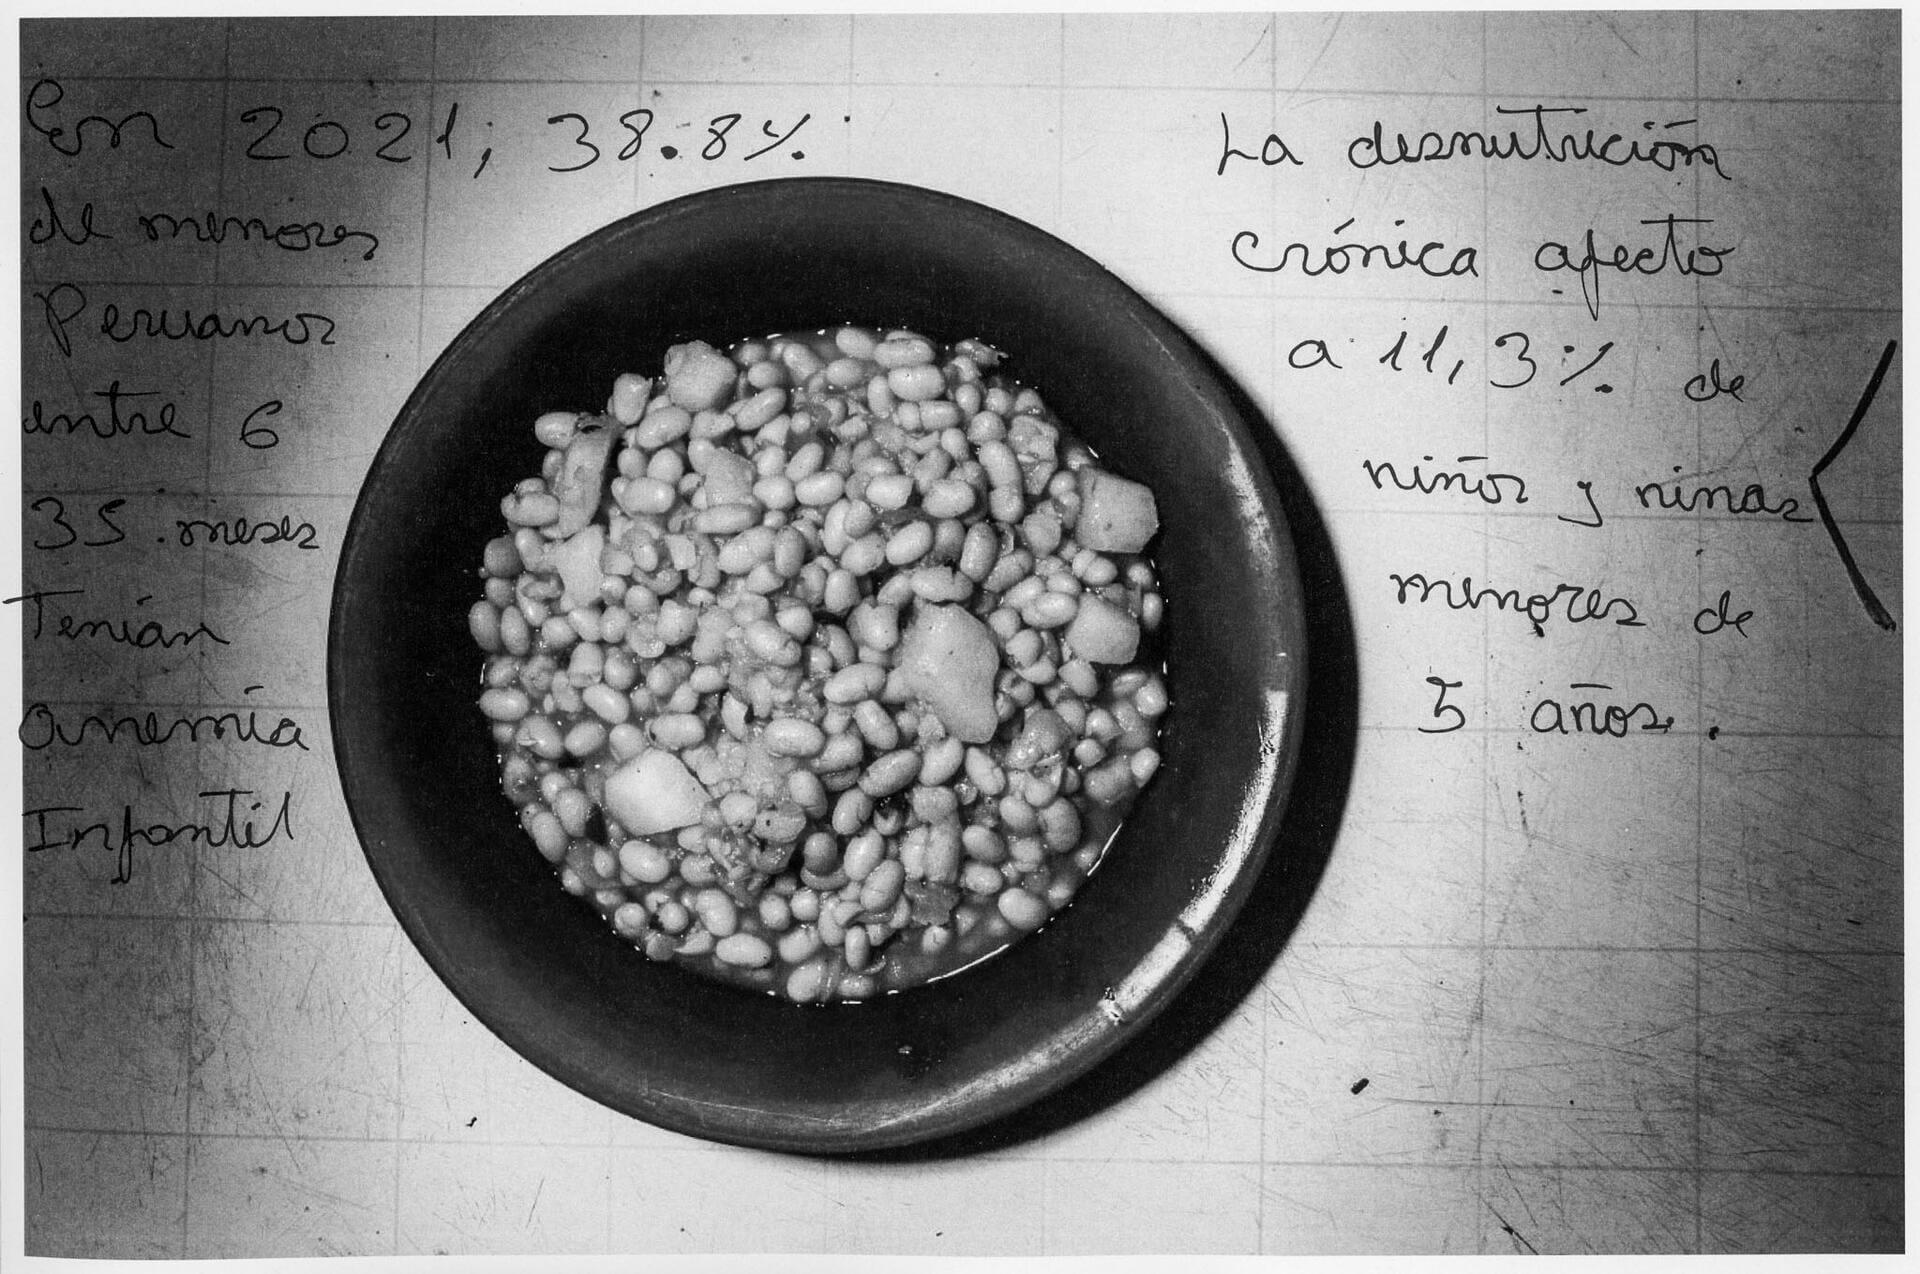 En 2021, 38.8%
de menores
Peruanos
entre 6
35 meses
Tenían
anemia
Infantil
La desnutrición
crónica afecto
a 11,3% de
niños y niñas
menores de
5 años.